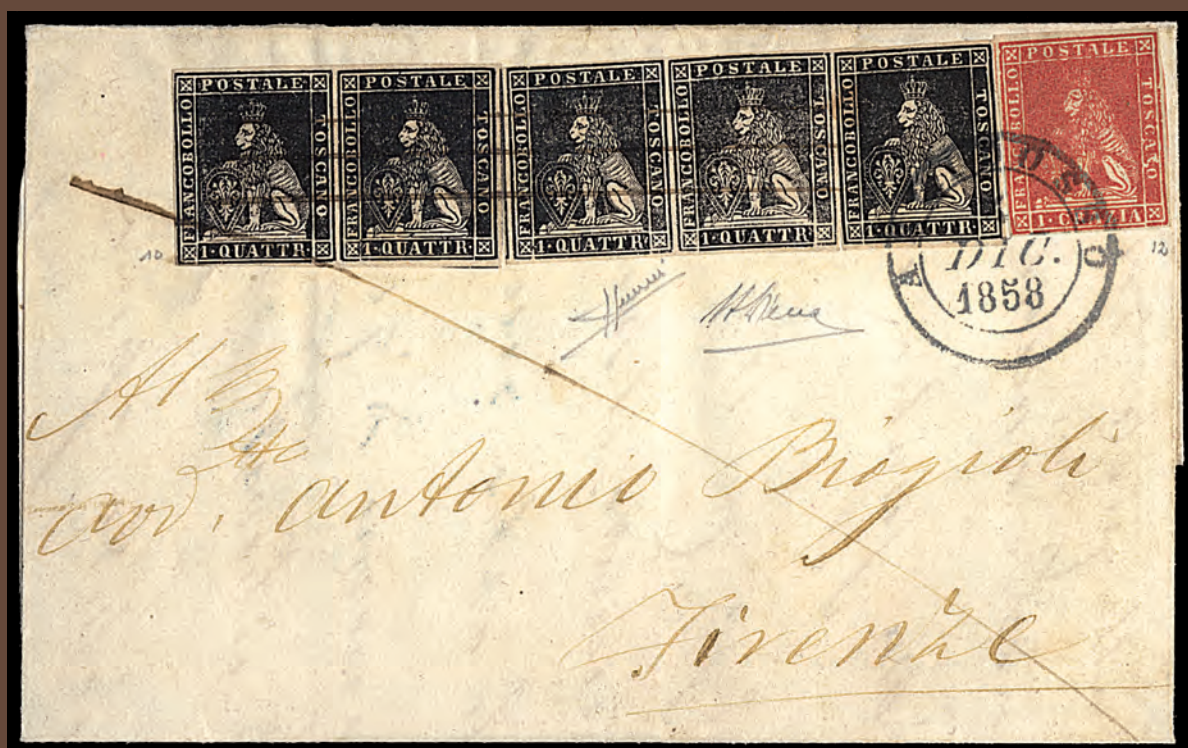 POSTALE
FRANCOBOLLO
TOSCANO
1·QUATTR·
POSTALE
FRANCOBOLLO
TOSCANO
1·QUATTR·
POSTALE
FRANCOBOLLO
TOSCANO
1·QUATTR·
POSTALE
FRANCOBOLLO
TOSCANO
1·QUATTR·
POSTALE
FRANCOBOLLO
TOSCANO
1·QUATTR·
POSTALE
FRANCOBOLLO
TOSCANO
1·CRAZIA
10
12
DIC.
1858
Al
Antonio Biogioli
Firenze